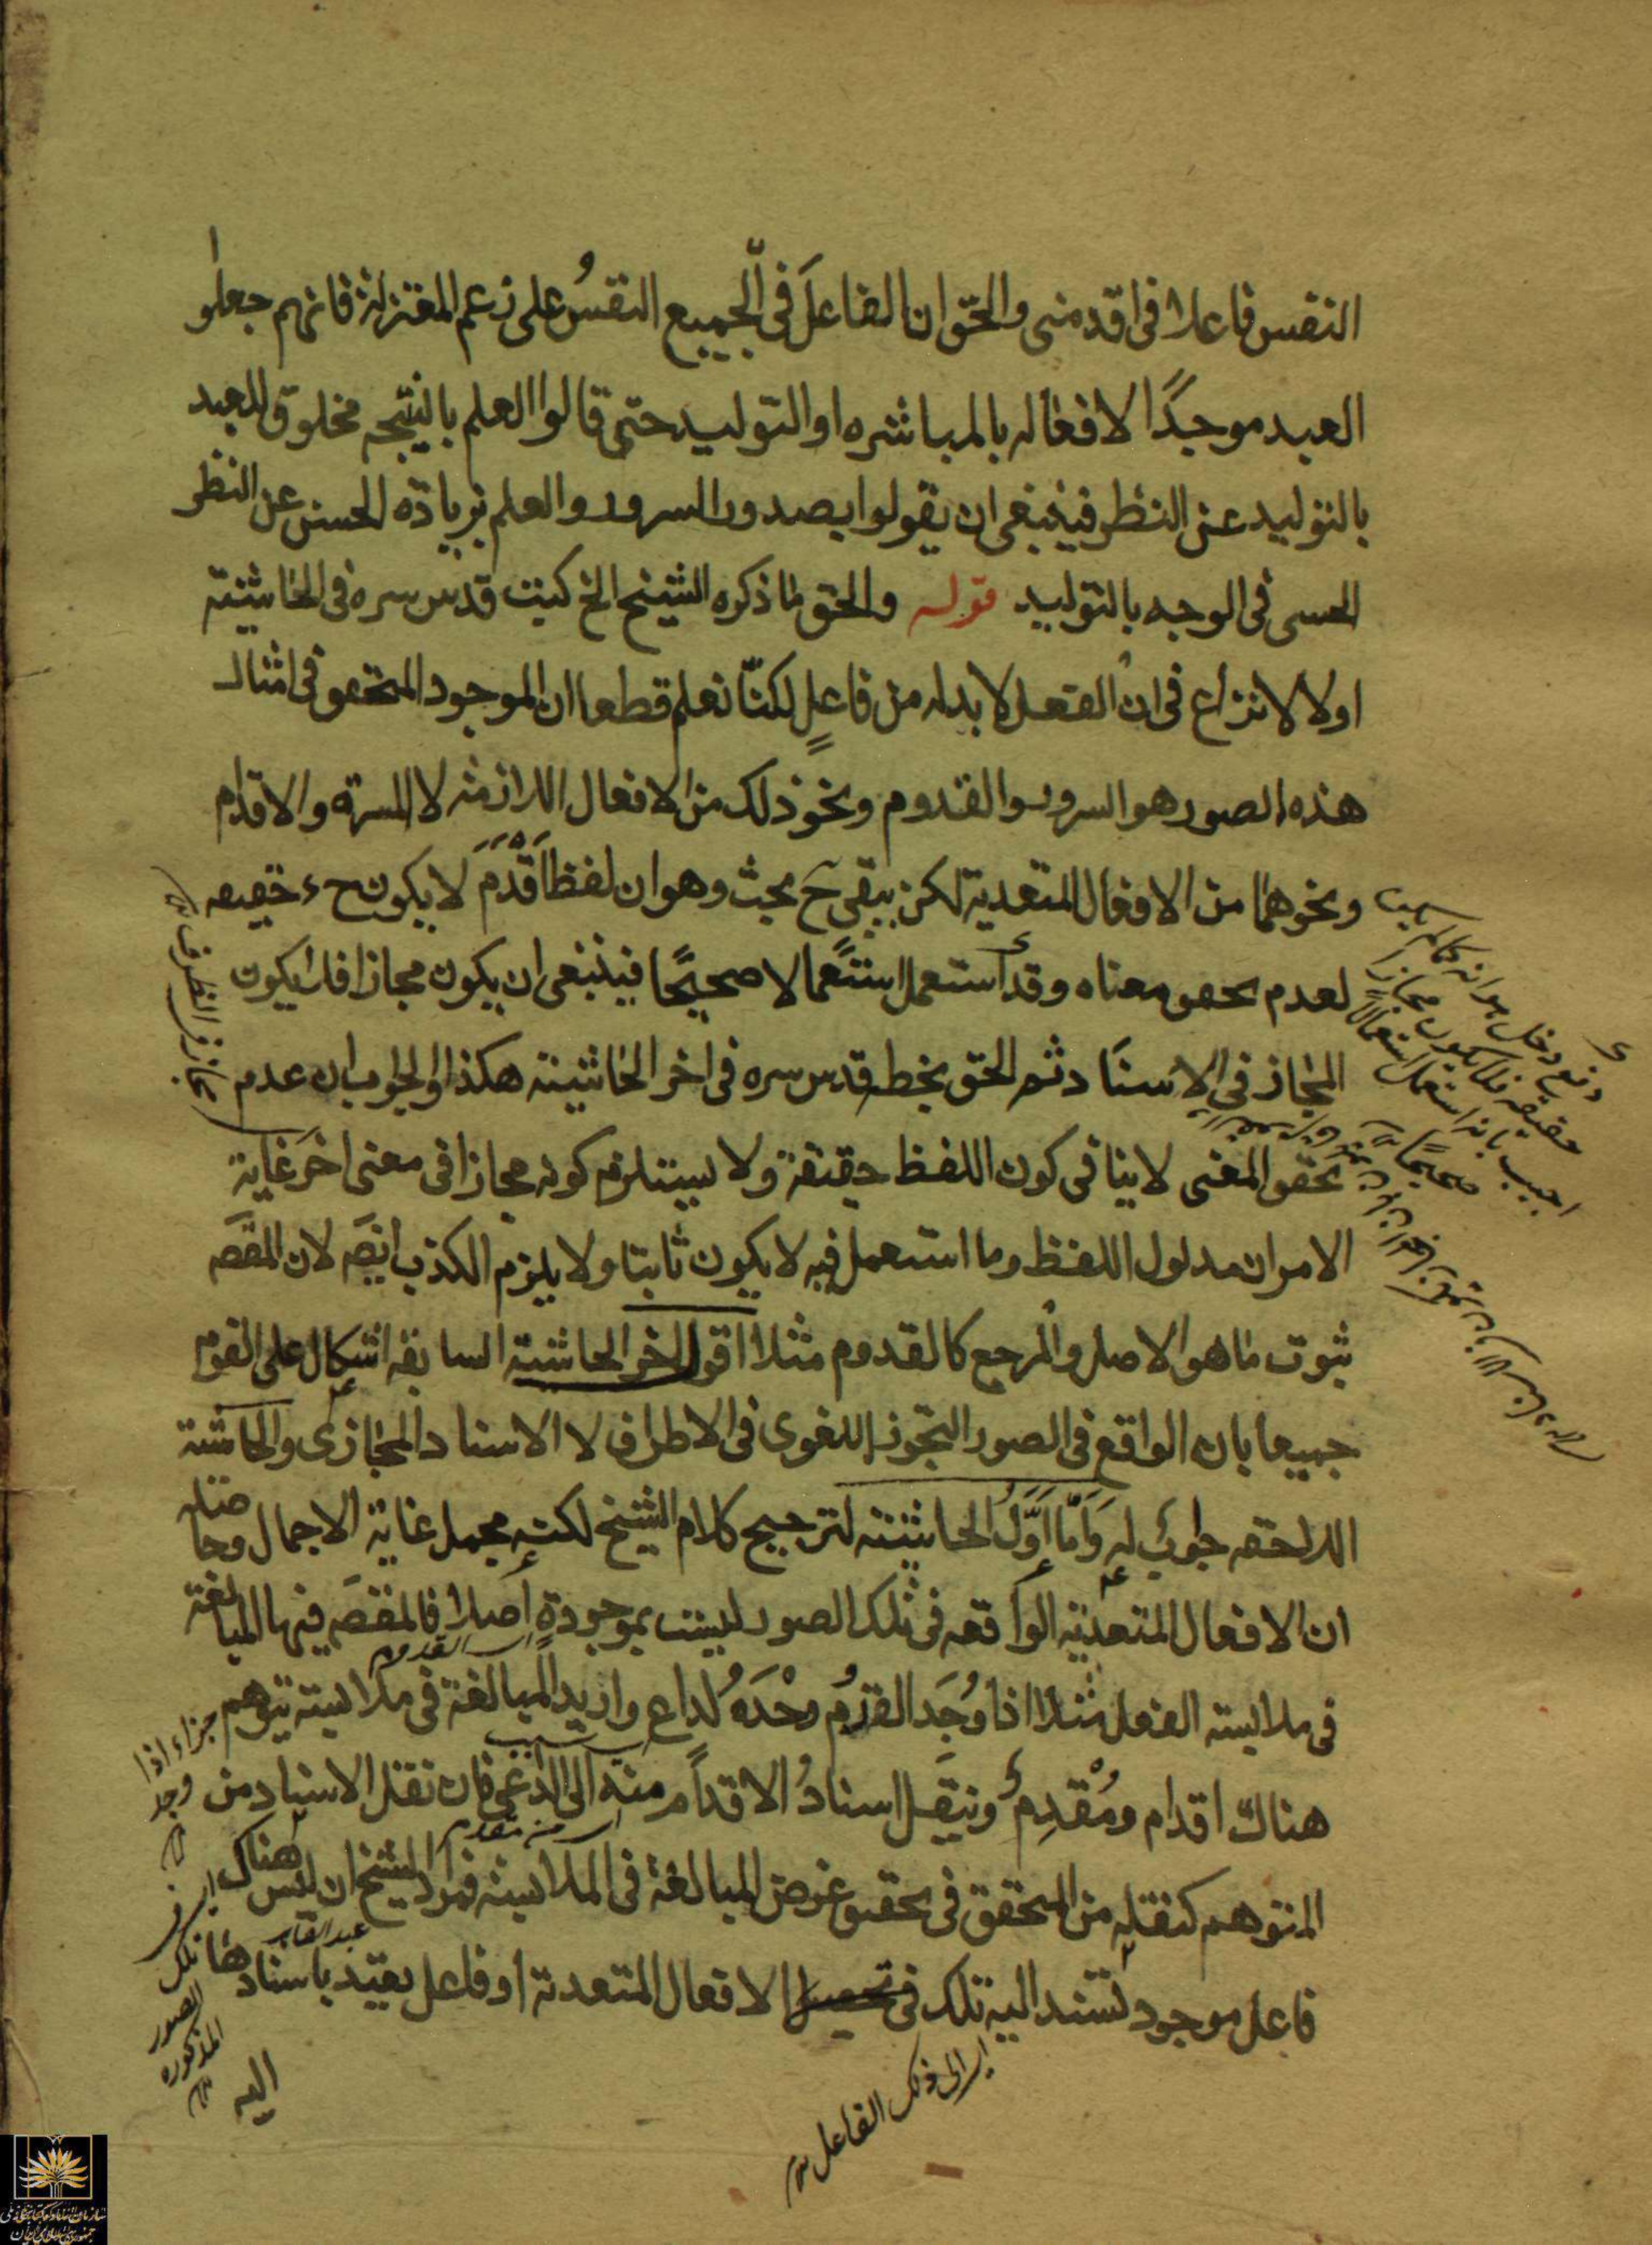 النفس فاعلا فى اقدمنى والحق ان الفاعل فى الجميع النفس على زعم المعتزلة فانهم جعلوا
العبد موجدًا لافعاله بالمباشره او التوليد حتى قالوا العلم بالنتيجه مخلوق للعبد
بالتوليد عن النظر فينبغى ان يقولوا بصدور السرور والعلم بزيادة الحسن عن النظر
الحسى فى الوجه بالتوليد قوله والحق ما ذكره الشيخ الخ كتبت قدس سره فى الحاشيته
اولا لا نزاع فى ان الفعل لا بدله من فاعلٍ لكنّا نعلم قطعا ان الموجود المتحقق فى امثال
هذه الصور هو السرور والقدوم ونحو ذلك من الافعال اللازمه لا المسرة والاقدام
ونحوهما من الافعال المتعدية لكن يبقى ح بحث وهو ان لفظ اَقْدَمَ لا يكون ح حقيقه
لعدم تحقق معناه وقد استعمل استعمالا صحيحًا فينبغى ان يكون مجازا فلا يكون
المجاز فى الاسناد ثم الحق بخط قدس سره فى اخر الحاشيته هكذا والجواب ان عدم
تحقق المعنى لا ينافى كون اللفظ حقيقة ولا يستلزم كونه مجازا فى معنى اخر غاية
الامر ان مدلول اللفظ وما استعمل فيه لا يكون ثابتا ولا يلزم الكذب ايضَ لان المقصَ
ثبوت ما هو الاصل والمرجع كالقدوم مثلا اقول اخر الحاشية السابقه اشكال على القوم
جميعا بان الواقع فى الصور التجوز اللغوى فى الاطراف لا الاسناد المجازى والحاشية
اللاحقه جواب له وَاَمّا اَوَّلُ الحاشيته لترجيح كلام الشيخ لكنه مجمل غاية الاجمال وحاصله
ان الافعال المتعديه الواقعه فى تلك الصور ليست بموجودةٍ اصلا فالمقصَ فيها المبالغة
فى ملابسته الفعل مثلا اذا وُجَد القدُوم وحْدَهُ لداعٍ واريد المبالغة فى ملابسته يتوهم
هناك اقدام ومُقْدِم وينقل اسنادُ الاقدام منه الى الداعى فان نقل الاسناد من
المتوهم كنقله من المتحقق فى تحقيق غرض المبالغة فى الملابسة فمراد الشيخ ان ليس هناك
فاعل موجود تستند اليه تلك الافعال المتعدية او فاعل يقيد باسنادها
اليه
مجاز فى الظرف
دفع دخل
حقيقه فلا يكون مجازا
اجيب بانه استعمل استعمالا
صحيحًا
القدوم
من مقدم
عبد القاهر
جزاء اذا
وجد
تلك
الصور
المذكوره
اى الى ذلك الفاعل